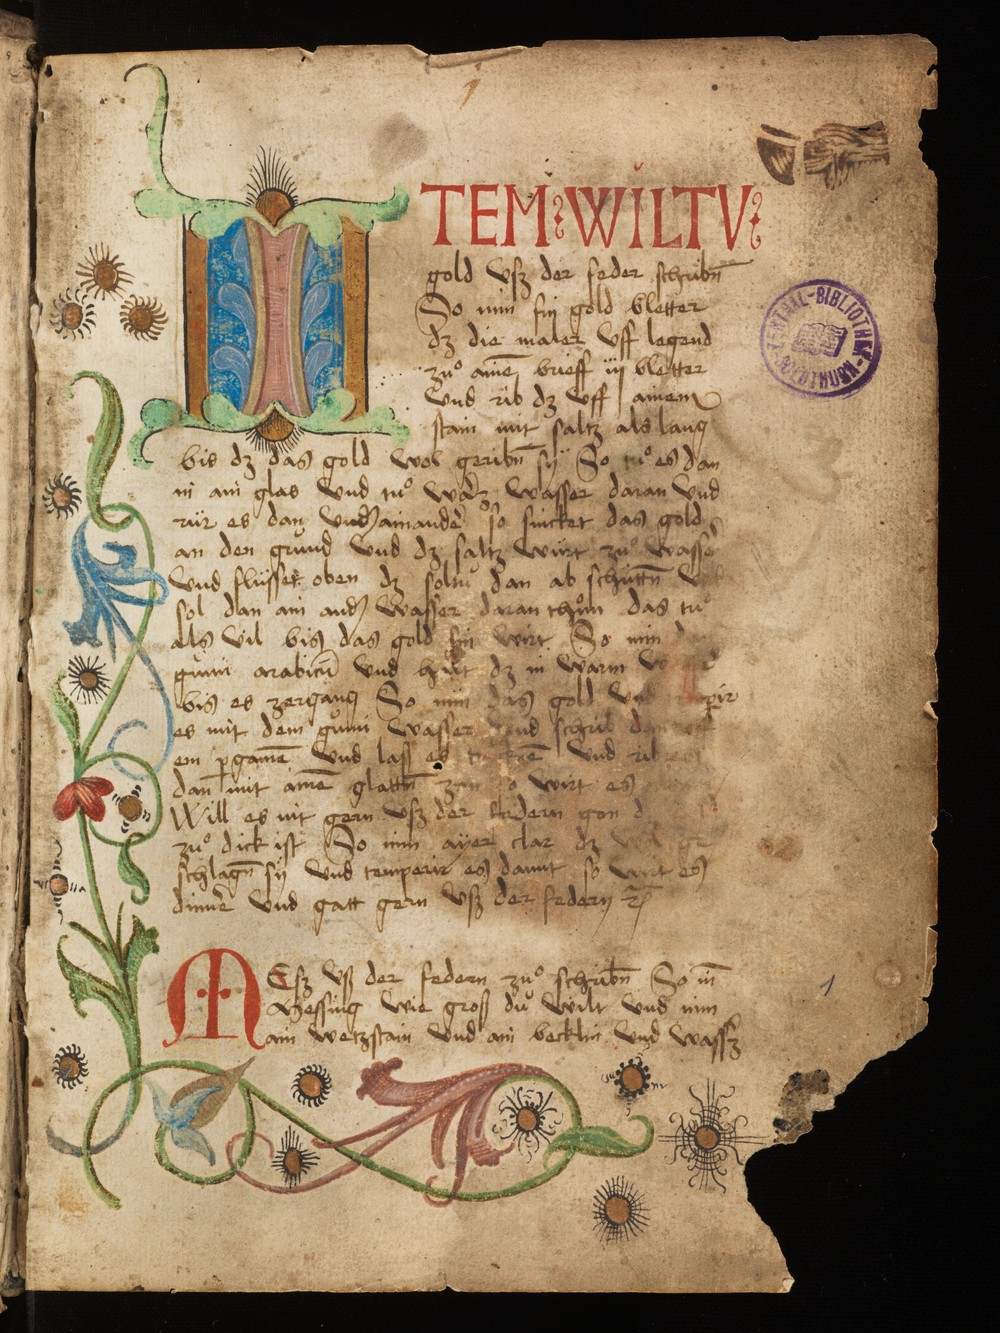 ITEM WILTV
gold vſz der feder ſchribn̄
So nim fin gold bletter
dz die maler vff legend
zuͦ ainē brieff iij bletter
vnd rib dz vff ainem
ſtain mit ſaltz als lang
bis dz das gold wol geribn̄ ſÿ So tuͦ es dan
in ain glas vnd tuͦ waſſer daran vnd
rür es dan vndʒainander ſo ſincket das gold
an den grund vnd dz ſaltz wirt zuͦ waſſer
vnd flüſſet oben dz ſoltu dan ab ſchüttn̄
ſol dan ain andʒ waſſer daran thuͦn das tuͦ
als vil bis das gold fin wirt So nim
gumi arabicū vnd dz in warm
bis es zergang So nim das gold vnd
es mit dem gumi waſſer vnd ſchrib
em pgamē vnd laſſ es vnd rib
dan mit aīnē glattn̄ zan ſo wirt es
Will es nit gern vſz der federn gon
zuͦ dick iſt So nim ayer clar dz
ſchlagn̄ ſÿ vnd temperir es damit ſo wirt es
dinner vnd gatt gern vſz der federn
MEſz vſz der federn zuͦ ſchribn̄ So nī
Meſſing wie groſſ du wilt vnd nim
ain wetzſtain vnd ain becklin vnd waſſz
ZENTRAL-BIBLIOTHEK
SOLOTHURN
1
1